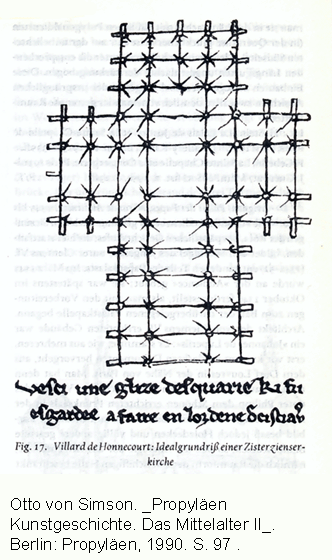 vesci une glize desquarie ki fu
esgardee a faire en lordene decistiaus
Fig. 17. Villard de Honnecourt: Idealgrundriß einer Zisterzienser-
kirche
Otto von Simson. _Propyläen
Kunstgeschichte. Das Mittelalter II_.
Berlin: Propyläen, 1990. S. 97 .